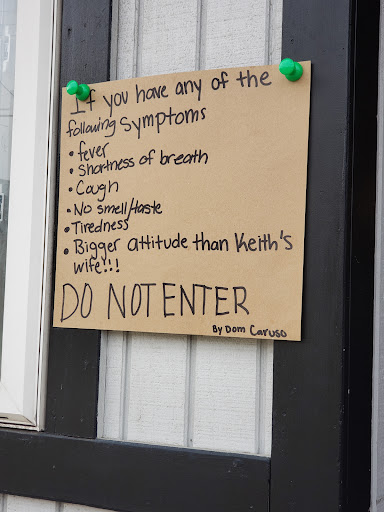 If you have any of the
following symptoms
• fever
• Shortness of breath
• Cough
• No smell/taste
• Tiredness
• Bigger attitude than Keith's
wife!!!
DO NOT ENTER
By Dom Caruso